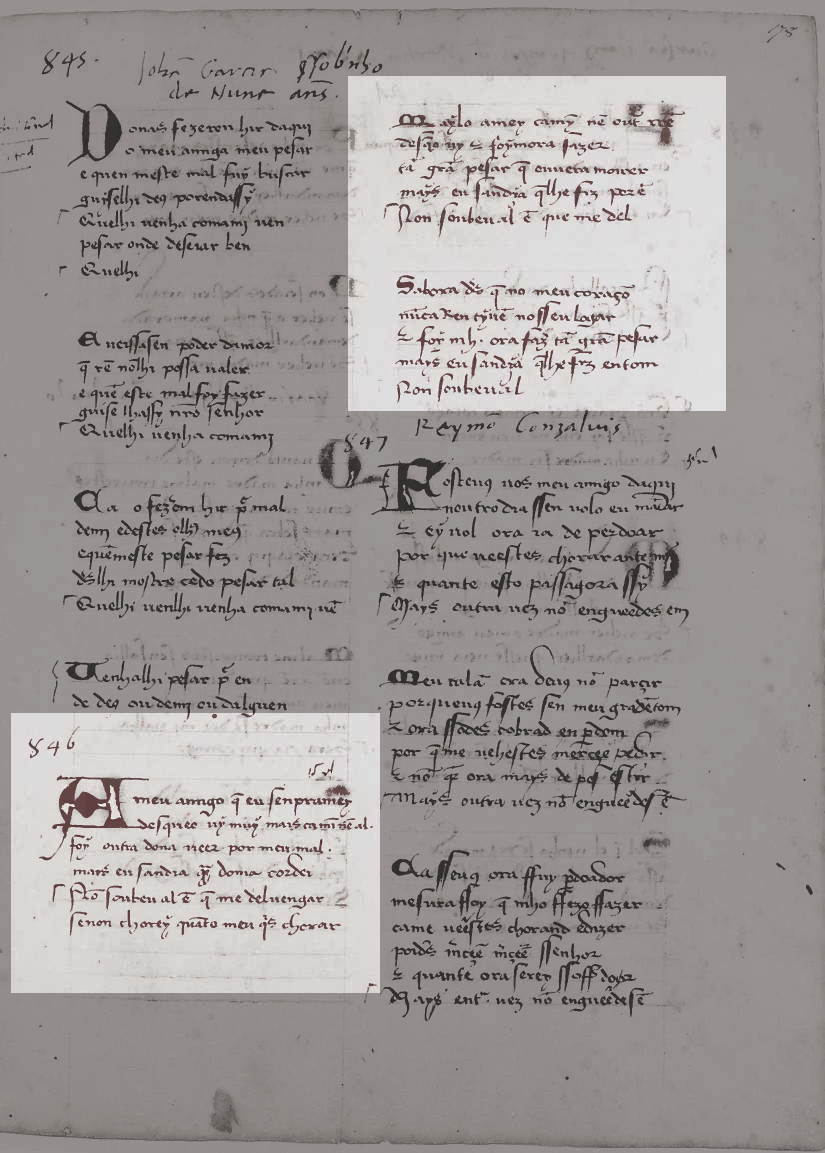 845.
Joham Garcia, ssobrinho
de Nune ans.
Donas fezeron hir daqui
o meu amigo meu pesar
e quen meste mal fuy buscar
guyselhi deꝯ
Quelhi uenha comami uen
pesar onde deseiar ben
Quelhi
A uerssasen poder damor
q̄ rē nolhi possa ualer
e quē este mal foy fazer
guise lhassy nr̄o senhor
Quelhi uenha comami
Ca o fezerm hir
demi e destes olh9 meꝯ
e quē meste pesar fez
d's lhi mostre cedo pesar tal
Quelhi uenlhi uenha comami uē
Uenhalhi pesar p̄ en
de deꝯ ou demi ou dalguen
846
A meu amigo q̄ eu senpramey
desqueo uy muy mais camī nē al.
foy outra dona ueer por meu mal.
mais eu sandia q̄n doma cordei
Nō soubeu al ē q̄ me deluengar
senon chorey quāto meu q's chorar
Maylo amey camȳ nē outʳ rrē
desq̄o uy & foymora fazer
tā grā pesar q̄ ouuera morrer
mays eu sandia q̄lhe frz por ē
Non soubeu al ē que me del
Sabora d's q̄ no meu coraçō
nūca Ren tyuē nosseu logar
& foy mh. ora faz tā grā pesar
mays eu sandia q̄lhe frz entom
Non soubeu al
Reymō Gonzaluis
847
Fostesuꝯ uos meu amigo daqui
noutro dia ssen uolo eu mādar
& ey uol ora ia de perdoar
por que ueestes chorar ante mī
& quante esto passagora ssy
Mays outra uez nō engueedes em
Meu talā era deuꝯ nō parcir
porqueuꝯ fostes sen meu gradētom
& ora ssodes cobrad en p̄dom
por q̄ me uehestes mercee pedir.
& nō ora mays de
Mays outra uez nō engueedes ē
Ca sseuꝯ ora ffuy p̄doador
mesura ffoy q̄ mho ffezo ffazer
ca me ueestes chorand e dizer
poid's m̄cee m̄cee ssenhor
& quante ora serey ssoff'dogr
Mays entʳ. uez nō engueedes ē